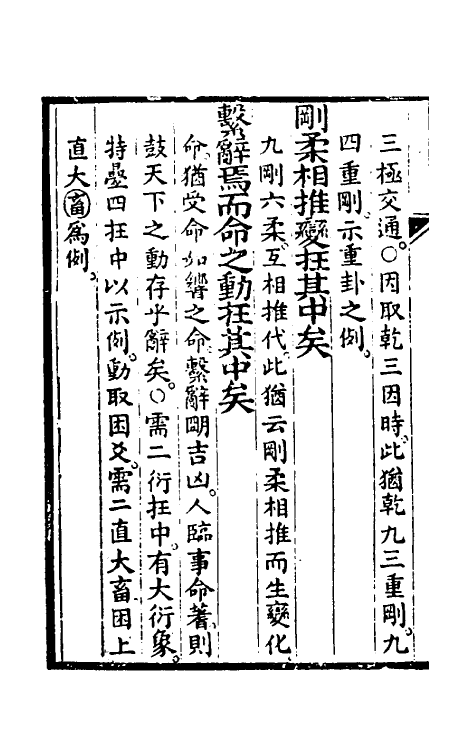 三極交通。○因取乾三因時此猶乾九三重剛。九
四重剛示重卦之例。
剛柔相推變在其中矣
九剛六柔互相推代此猶云剛柔相推而生變化
繫辭焉而命之動在其中矣
命猶受命如響之命繫辭明吉凶。人臨事命蓍則
鼓天下之動存乎辭矣。○需二衍在中。有大衍象。
特疊四在中以示例動取困爻。需二直大畜困上
直大畜為例。